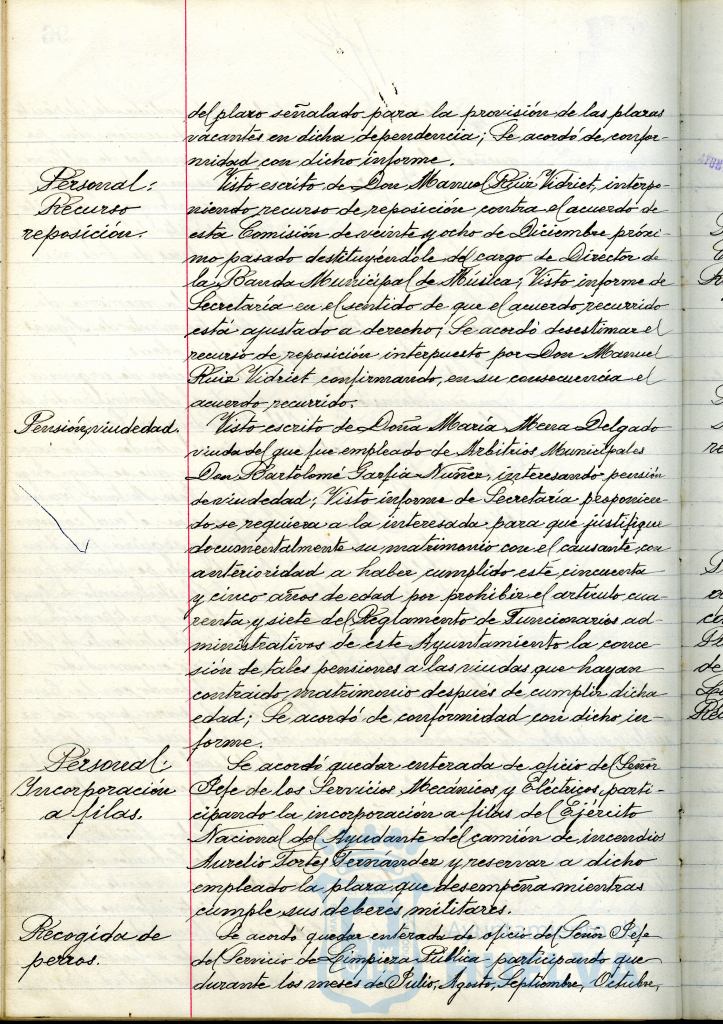 del plazo señalado para la provisión de las plazas
vacantes en dicha dependencia; Se acordó de confor-
midad con dicho informe.
Personal:
Recurso
reposición.
Visto escrito de Don Manuel Ruiz Vidriet, interpo-
niendo recurso de reposición contra el acuerdo de
esta Comisión de veinte y ocho de Diciembre próxi-
mo pasado destituyéndole del cargo de Director de
la Banda Municipal de Música; Visto informe de
Secretaría en el sentido de que el acuerdo recurrido
está ajustado a derecho; Se acordó desestimar el
recurso de reposición interpuesto por Don Manuel
Ruiz Vidriet confirmando, en su consecuencia el
acuerdo recurrido.
Pensión viudedad.
Visto escrito de Doña María Mena Delgado
viuda del que fue empleado de Arbitrios Municipales
Don Bartolomé Garfia Nuñez, interesando pensión
de viudedad; Visto informe de Secretaría proponien-
do se requiera a la interesada para que justifique
documentalmente su matrimonio con el causante con
anterioridad a haber cumplido este cincuenta
y cinco años de edad por prohibir el artículo cua-
renta y siete del Reglamento de Funcionarios ad-
ministrativos de este Ayuntamiento la conce-
sión de tales pensiones a las viudas que hayan
contraido matrimonio después de cumplir dicha
edad; Se acordó de conformidad con dicho in-
forme.
Personal:
Incorporación
a filas.
Se acordó quedar enterada de oficio del Señor
Jefe de los Servicios Mecánicos y Eléctricos, parti-
cipando la incorporación a filas del Ejército
Nacional del Ayudante del camión de incendios
Aurelio Tortes Fernández y reservar a dicho
empleado la plaza que desempeña mientras
cumple sus deberes militares.
Recogida de
perros.
Se acordó quedar enterada de oficio del Señor Jefe
del Servicio de Limpieza Pública participando que
durante los meses de Julio, Agosto, Septiembre, Octubre,